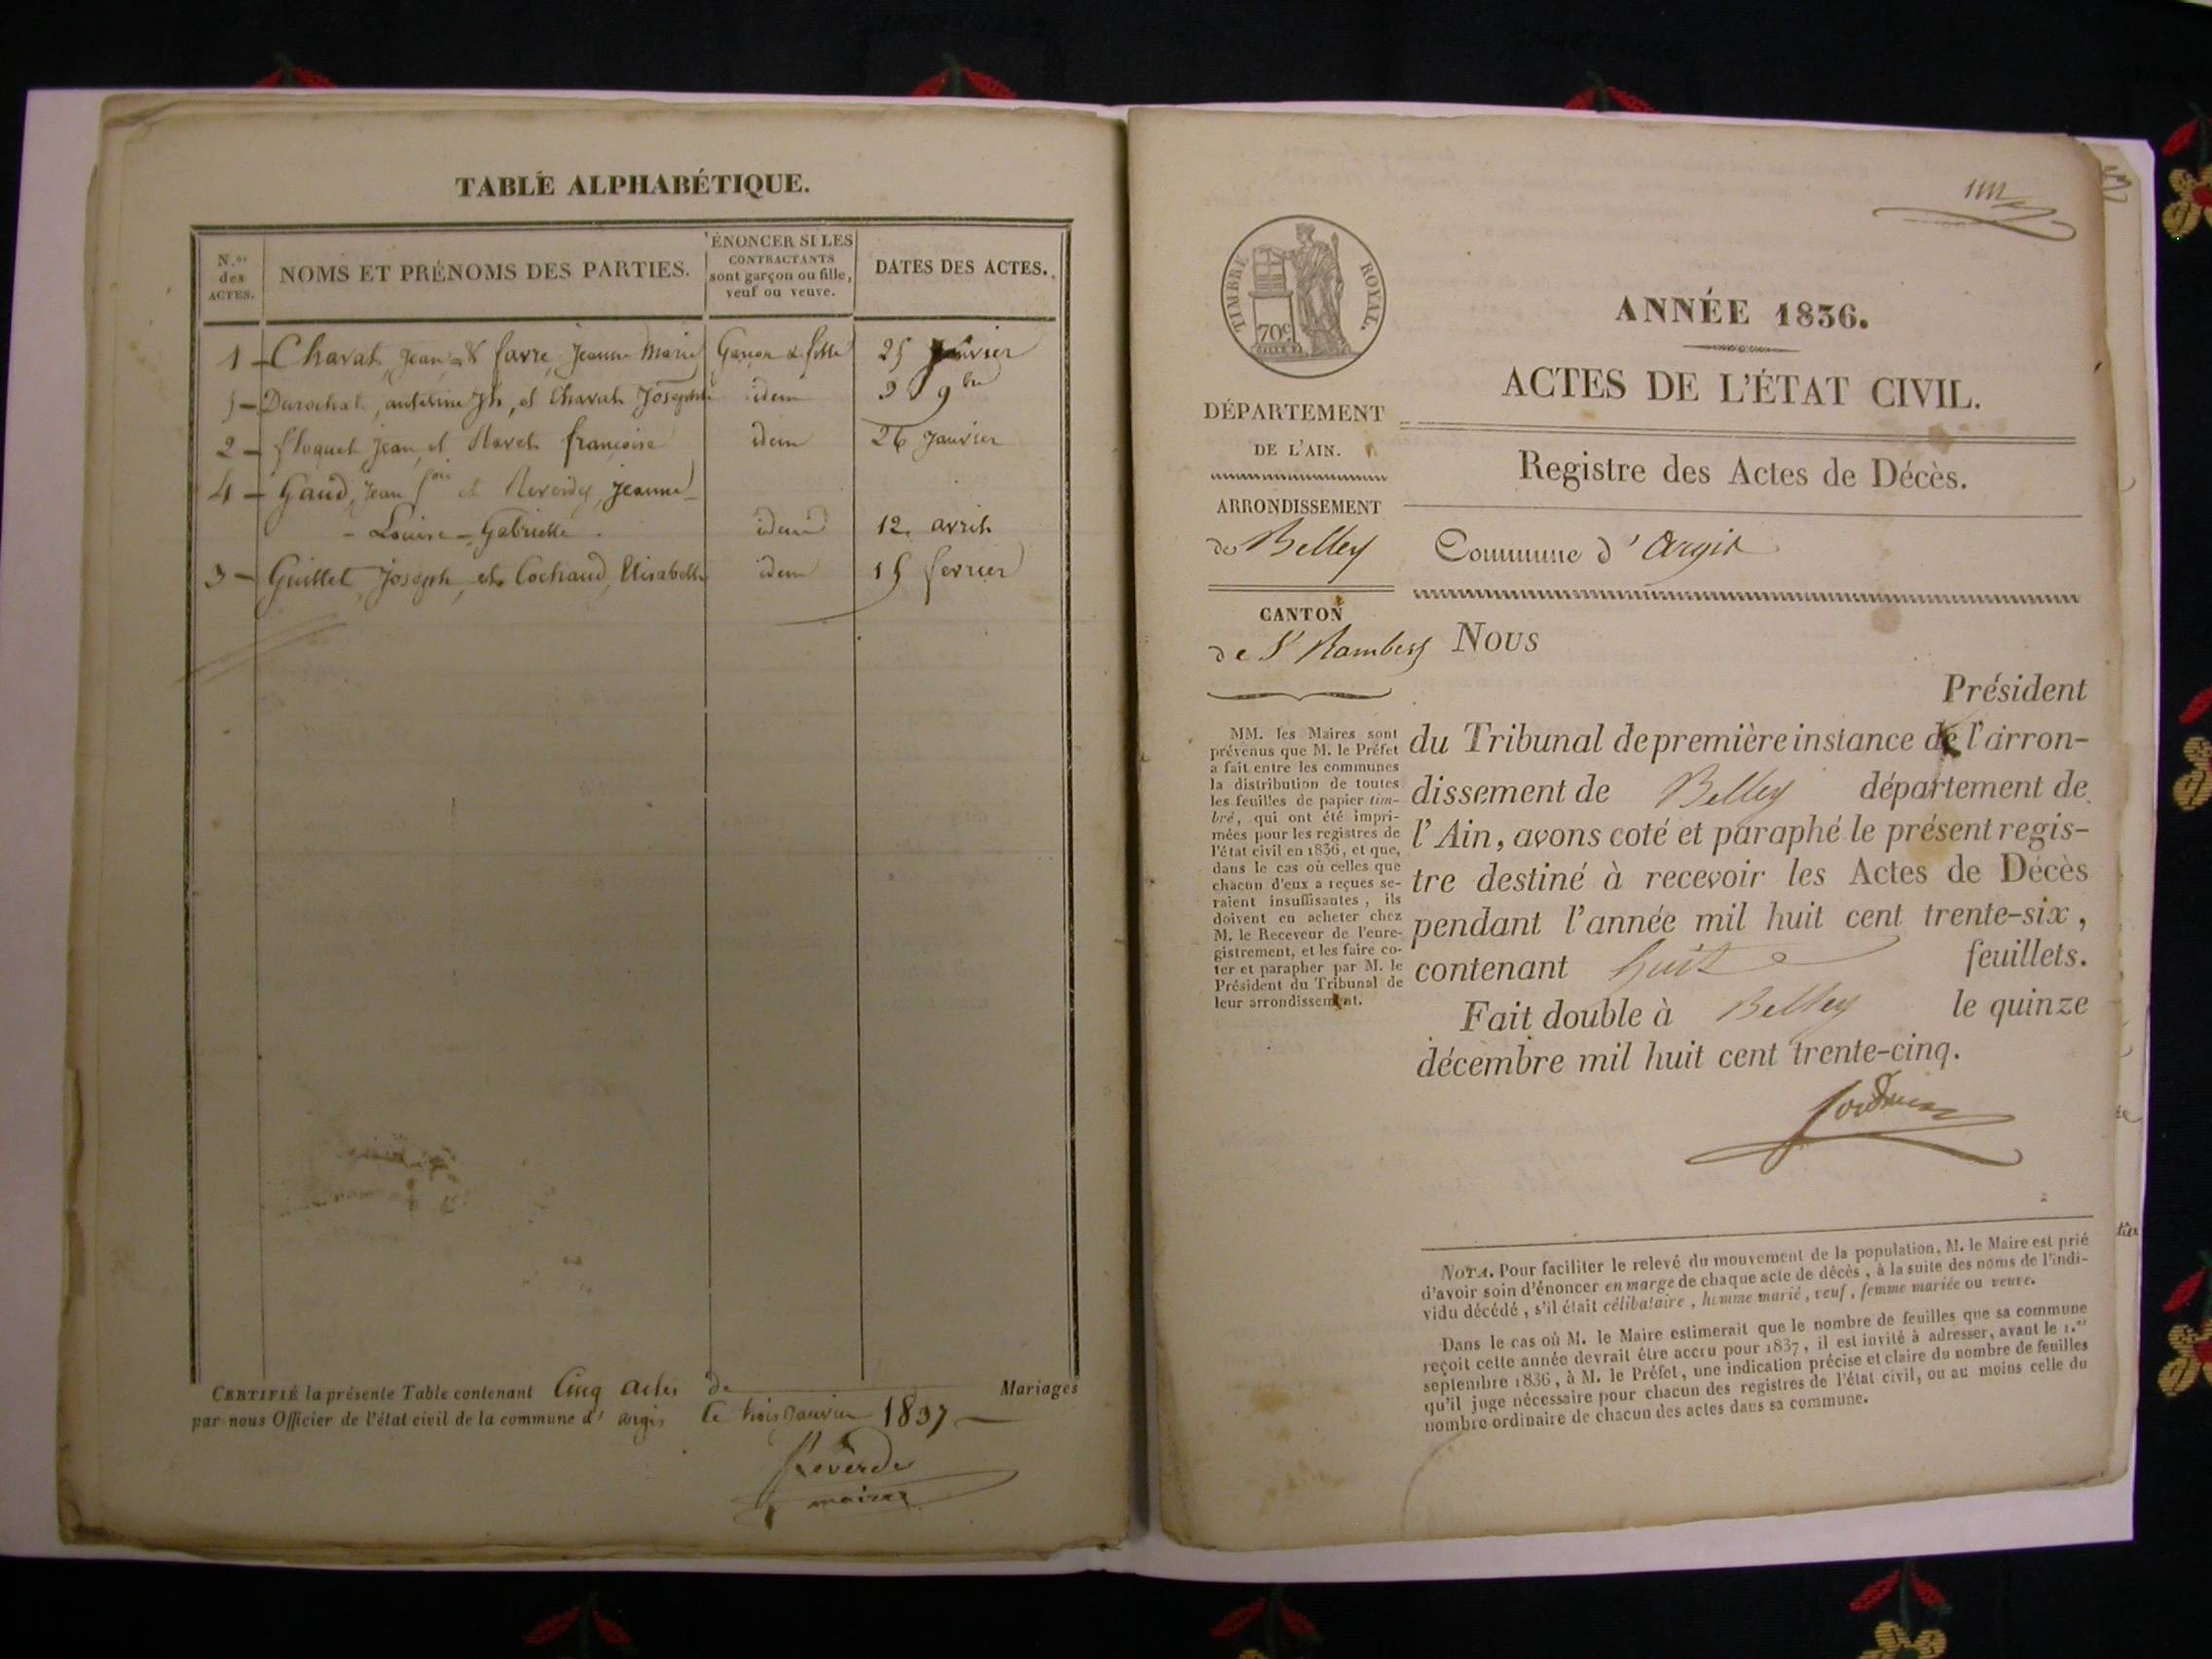 TABLE ALPHABÉTIQUE.
N.os des ACTES.
NOMS ET PRÉNOMS DES PARTIES.
ÉNONCER SI LES
CONTRACTANTS
sont garçon ou fille,
veuf ou veuve.
DATES DES ACTES.
1 - Chavat, Jean & favre, Jeanne Marie Garçon & fille 25 Janvier
5 - Durochat, antoine Jh, et Chavat Josephte idem 3 9bre
2 - floquet Jean et Ravet françoise idem 26 Janvier
4 - Gaud, Jean fois et Reverdy, Jeanne
- Louise - Gabrielle idem 12 avril
3 - Guillet, Joseph, et Cochaud, Elisabeth idem 15 fevrier
CERTIFIÉ la présente Table contenant Cinq actes de Mariages
par nous Officier de l'état civil de la commune d' argis le trois Janvier 1837
Reverdi
maire
TIMBRE ROYAL.
70c
DÉPARTEMENT
DE L'AIN.
ARRONDISSEMENT
de Belley
CANTON
de St Rambert
MM. les Maires sont
prévenus que M. le Préfet
a fait entre les communes
la distribution de toutes
les feuilles de papier tim-
bré, qui ont été impri-
mées pour les registres de
l'état civil en 1836, et que,
dans le cas où celles que
chacun d'eux a reçues se-
raient insuffisantes, ils
doivent en acheter chez
M. le Receveur de l'enre-
gistrement, et les faire co-
ter et parapher par M. le
Président du Tribunal de
leur arrondissement.
ANNÉE 1836.
ACTES DE L'ÉTAT CIVIL.
Registre des Actes de Décès.
Commune d'Argis
Nous
Président
du Tribunal de première instance de l'arron-
dissement de Belley département de
l'Ain, avons coté et paraphé le présent regis-
tre destiné à recevoir les Actes de Décès
pendant l'année mil huit cent trente-six,
contenant huit feuillets.
Fait double à Belley le quinze
décembre mil huit cent trente-cinq.
NOTA. Pour faciliter le relevé du mouvement de la population, M. le Maire est prié
d'avoir soin d'énoncer en marge de chaque acte de décès, à la suite des noms de l'indi-
vidu décédé, s'il était célibataire, homme marié, veuf, femme mariée ou veuve.
Dans le cas où M. le Maire estimerait que le nombre de feuilles que sa commune
reçoit cette année devrait être accru pour 1837, il est invité à adresser, avant le 1.er
septembre 1836, à M. le Préfet, une indication précise et claire du nombre de feuilles
qu'il juge nécessaire pour chacun des registres de l'état civil, ou au moins celle du
nombre ordinaire de chacun des actes dans sa commune.